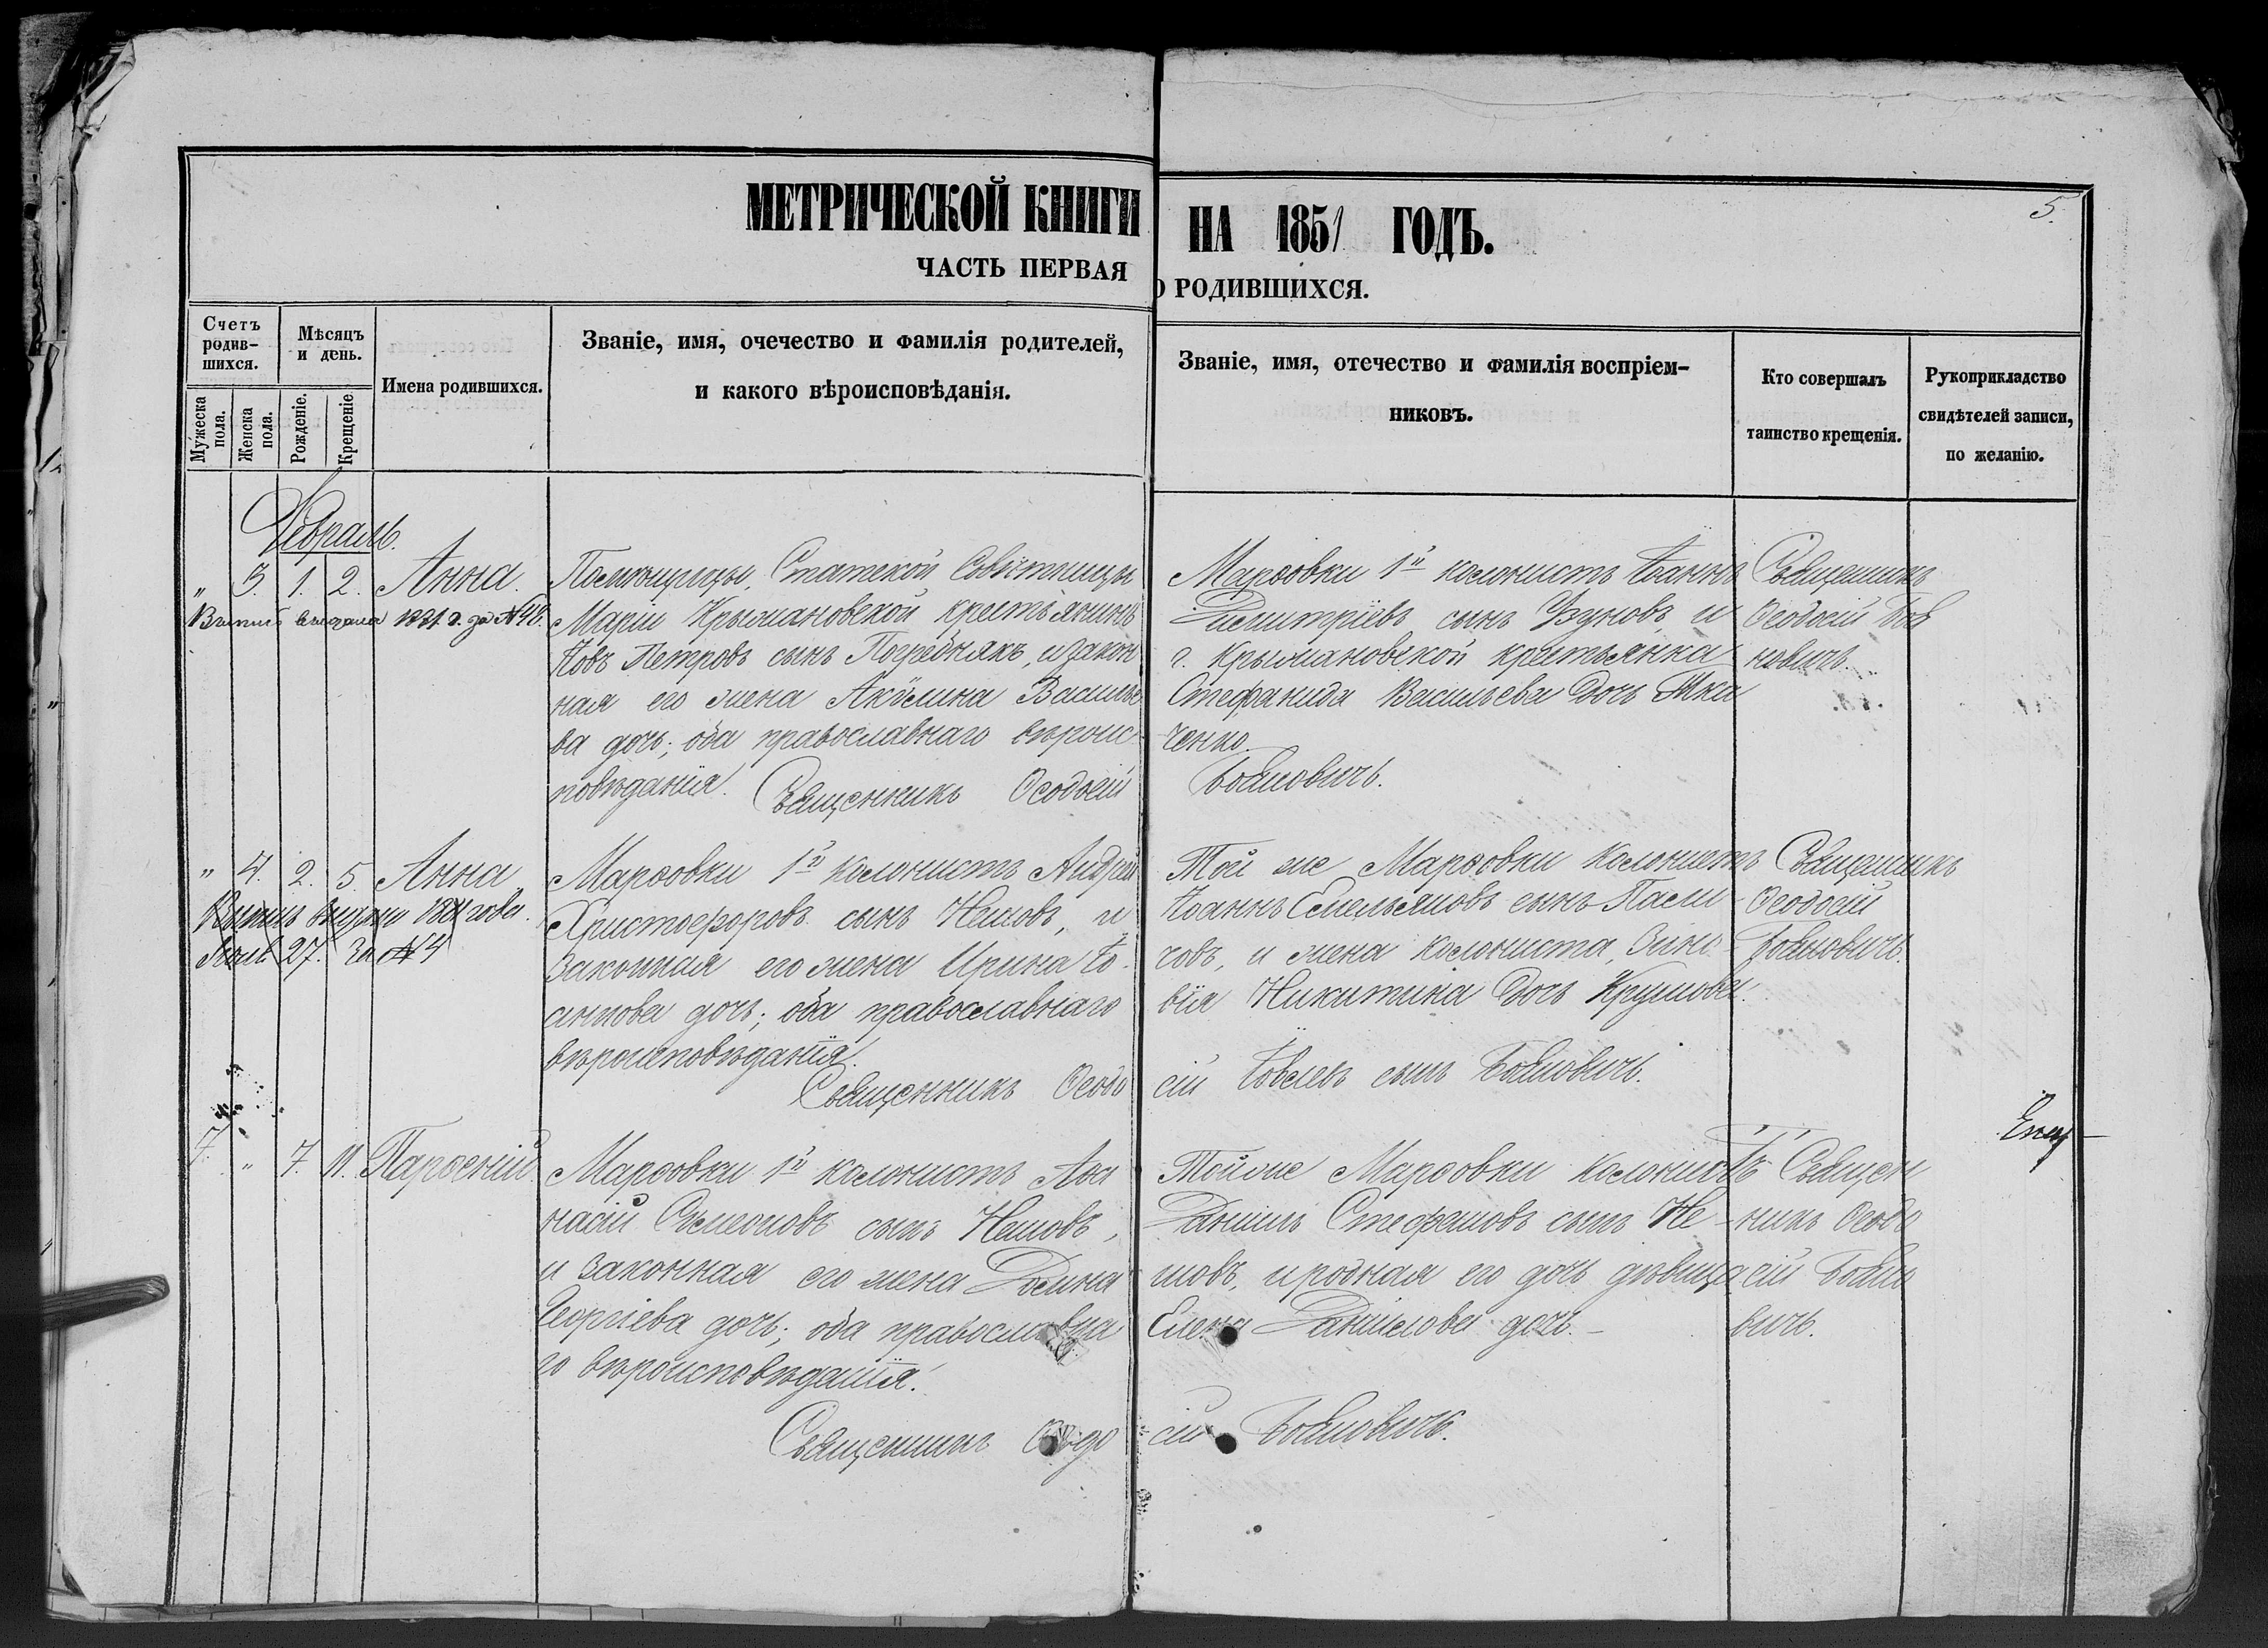 МЕТРИЧЕСКОЙ КНИГИ НА 1851 ГОДЪ.
5.
ЧАСТЬ ПЕРВАЯ О РОДИВШИХСЯ.
Счетъ родив-шихся.
Мужеска пола.
Женска пола.
Мѣсяцъ и день.
Рожденіе.
Крещеніе.
Имена родившихся.
Званіе, имя, очечество и фамилія родителей,
и какого вѣроисповѣданія.
Званіе, имя, отечество и фамилія воспріем-
никовъ.
Кто совершалъ
таинство крещенія.
Рукоприкладство
свидѣтелей записи,
по желанію.
Февраль.
„ 3. 1. 2. Анна.
1871 г. за №
Помѣщицы, Статской Совѣтницы
Маріи Крыжановской крестьянинъ
Іовъ Петровъ сынъ Погребнякъ, и закон
ная его жена Акѵлина Василье
ва дочь; оба православнаго вѣроис-
повѣданія.
Священникъ Ѳеодосій Бойновичъ.
Марѳовки 1й колонистъ Іоаннъ
Димитріевъ сынъ Узуновъ, и
г. Крыжановской крестьянка
Стефанида Васильева дочь Тка
ченко.
Священникъ
Ѳеодосій Бой
новичъ.
„ 4. 2. 5. Анна
27. За № 4
Марѳовки 1й колонистъ Андрей
Христофоровъ сынъ Нешовъ, и
законная его жена Ирина Іо-
аннова дочь; оба православнаго
вѣроисповѣданія.
Священникъ Ѳеодо
сій сынъ Бойновичъ.
Той же Марѳовки колонистъ
Іоаннъ Емельяновъ сынъ Пали
човъ, и жена колониста, Зино-
вія Никитина дочь
Священникъ
Ѳеодосій
Бойновичъ.
7. „ 7. 11. Парѳеній.
Марѳовки 1й колонистъ Аѳа
насій Сѵмеоновъ сынъ Нешовъ,
и законная его жена Домна
Георгіева дочь; оба православна
го вѣроисповѣданія.
Священникъ Ѳеодо
сій Бойновичъ.
Той же Марѳовки колонистъ
Даніилъ Стефановъ сынъ Не-
шовъ, и родная его дочь дѣвица
Елена Даніилова дочь.
Священ
никъ Ѳеодо
сій Бойно
вичъ.